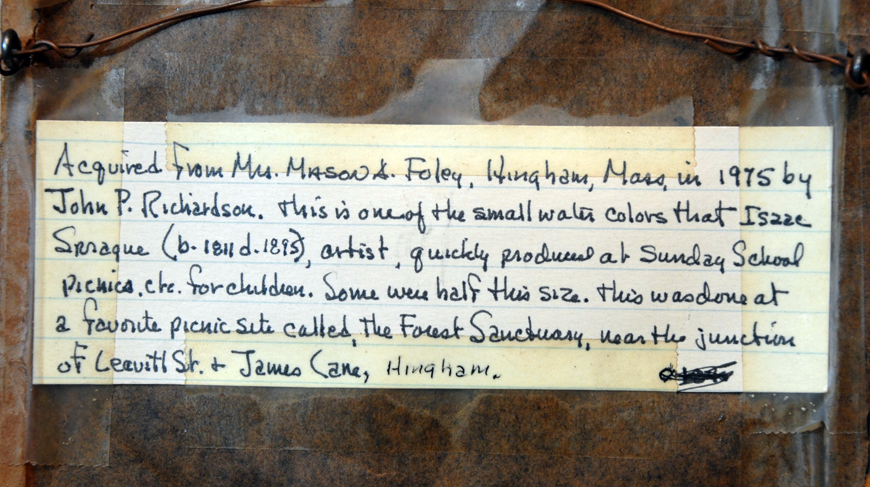 Acquired from Mrs. Mason A. Foley, Hingham, Mass, in 1975 by
John P. Richardson. This is one of the small water colors that Isaac
Sprague (b. 1811 d. 1895), artist, quickly produced at Sunday School
picnics, etc. for children. Some were half this size. This was done at
a favorite picnic site called, The Forest Sanctuary, near the junction
of Leavitt St. + James Lane, Hingham.